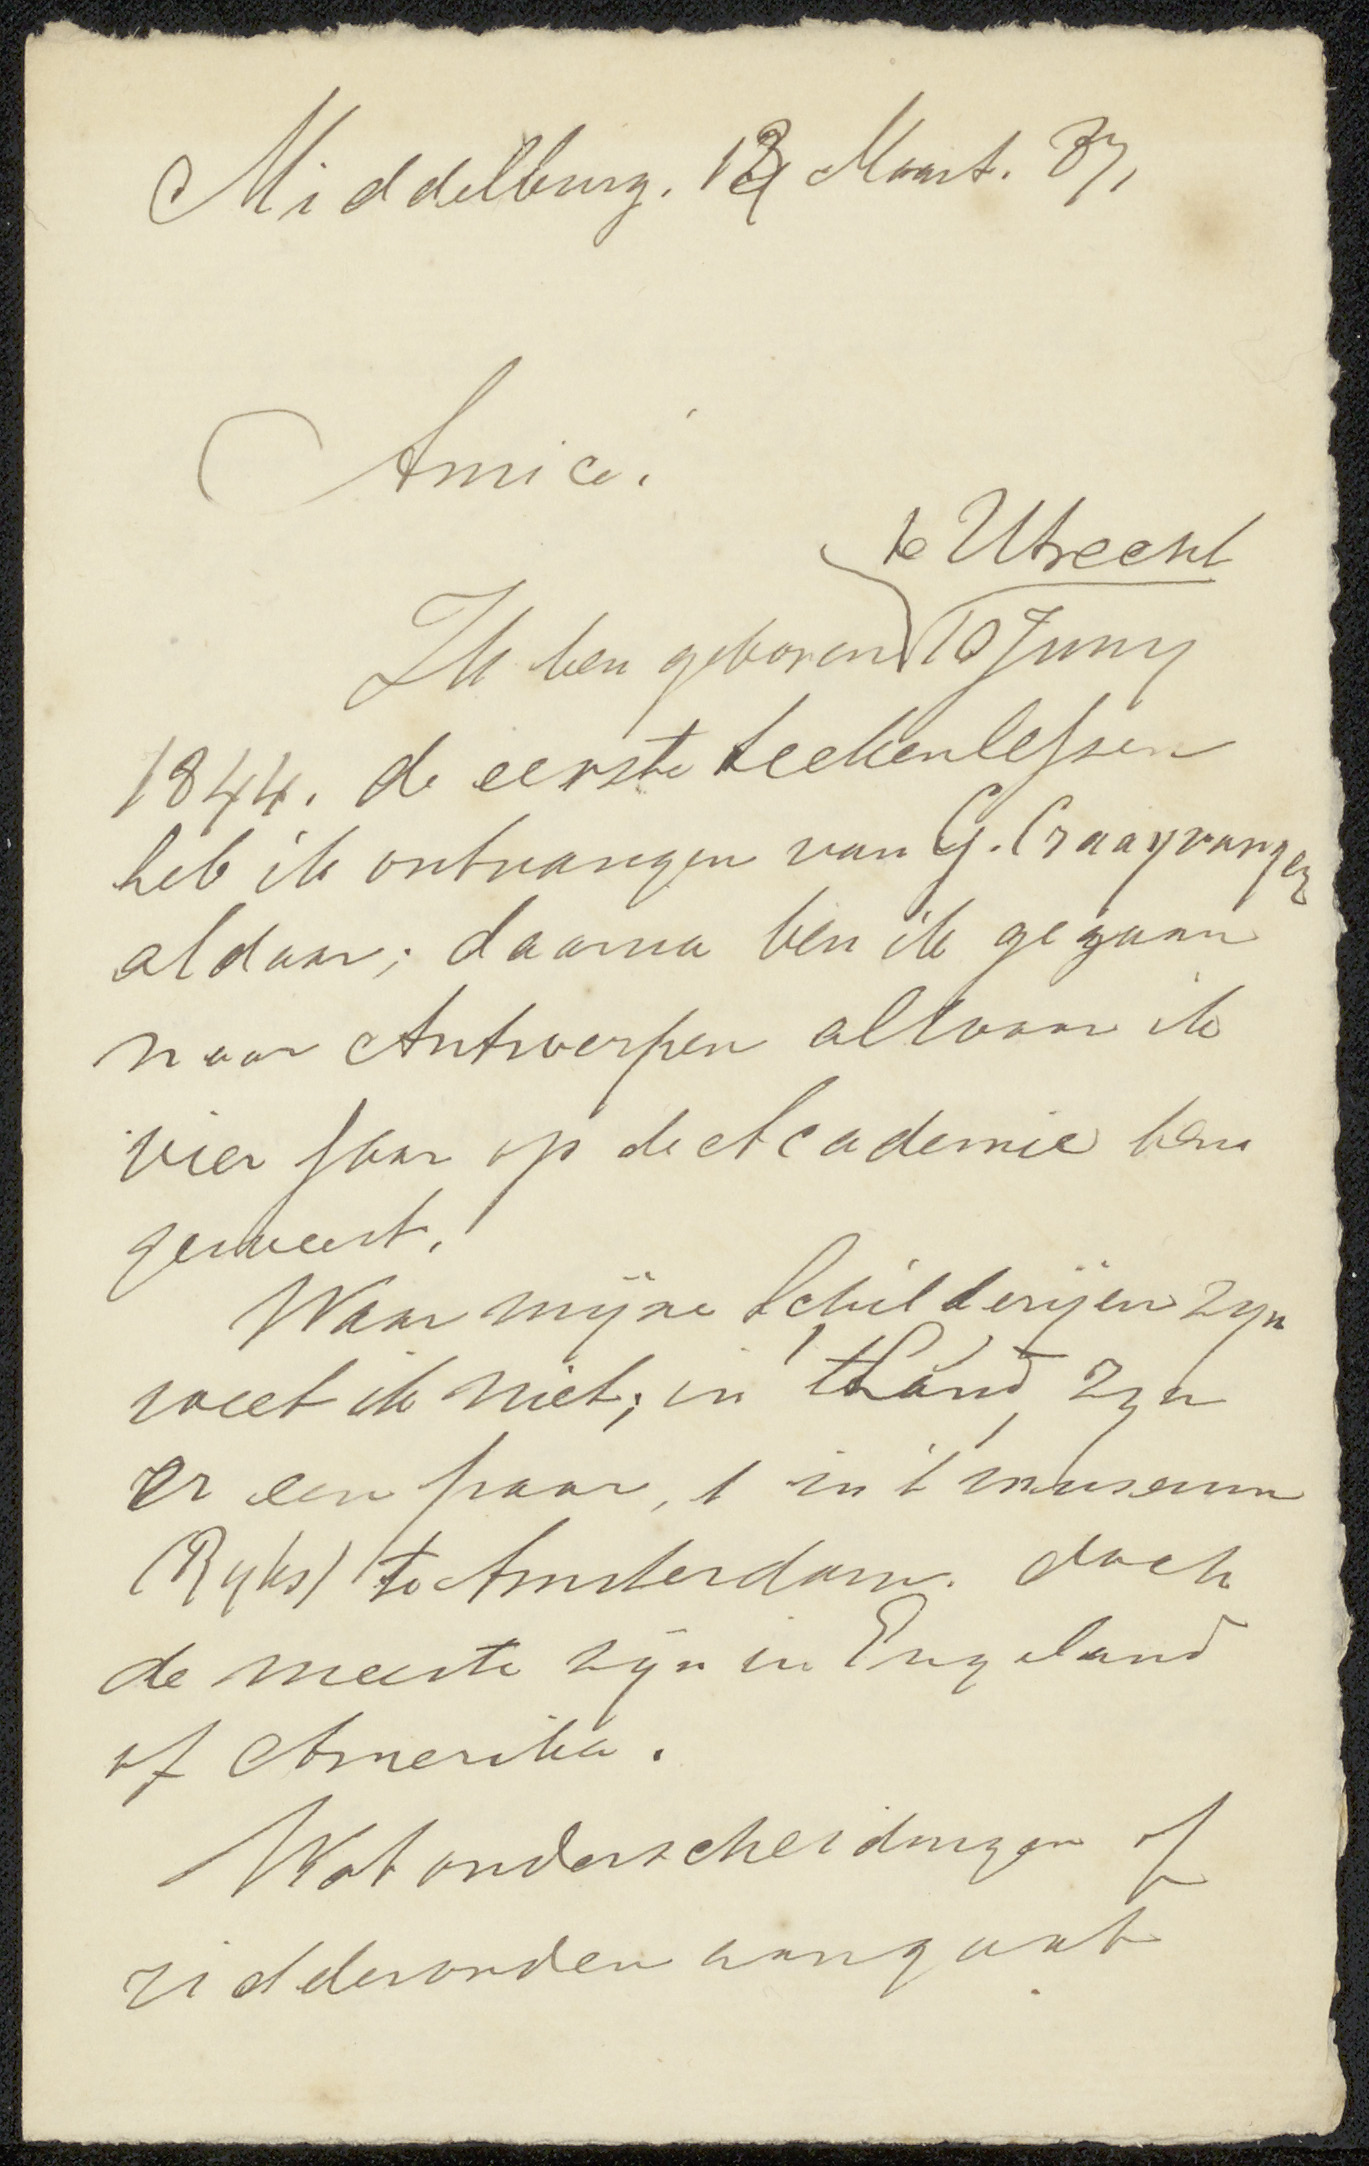 Middelburg. 13 Maart. 87,
Amice!
te Utrecht
Ik ben geboren 10 Juny
1844. de eerste teekenlessen
heb ik ontvangen van G. Craayvanger
aldaar; daarna ben ik gegaan
naar Antwerpen alwaar ik
vier jaar op de Academie ben
geweest.
Waar mijne Schilderijen zyn
weet ik niet; in 't land zyn
er een paar, 1 in 't museum
(Ryks) te Amsterdam. doch
de meeste zijn in Engeland
of Amerika.
Wat onderscheidingen of
ridderorden aangaat